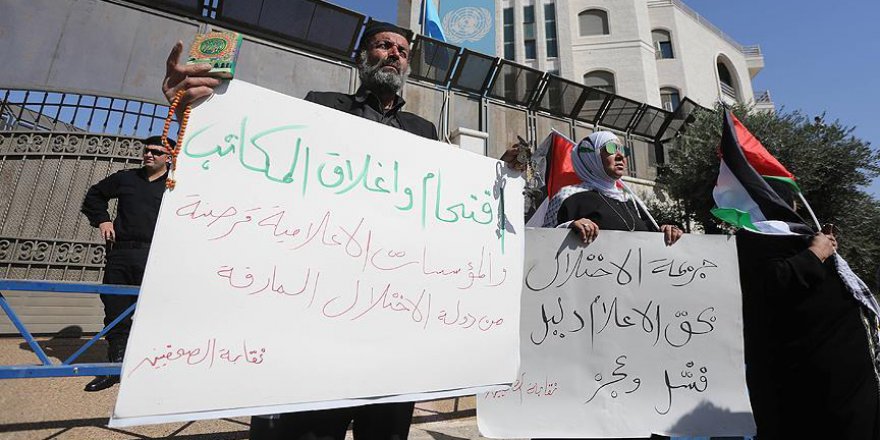 اقتحام واغلاق المكاتب
والمؤسسات الاعلامية قرصنة
من دولة الاحتلال المارقة
نقابة الصحفيين
جريمة الاحتلال
بحق الاعلام دليل
فشل وعجز
نقابة الصحفيين